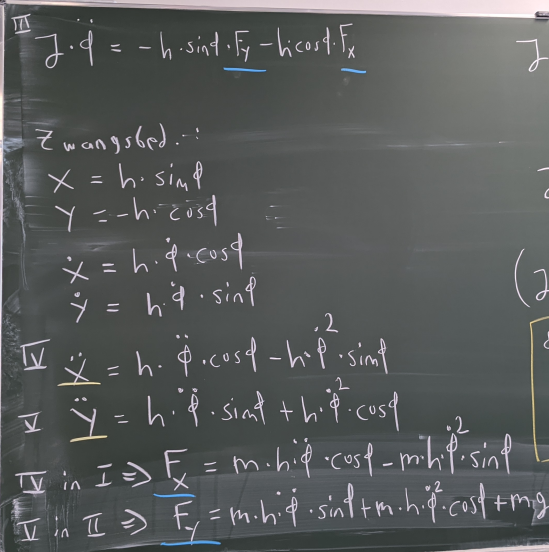 III J·φ̈ = -h·sinφ·Fy - h·cosφ·Fx
Zwangsbed.:
X = h·sinφ
Y = -h·cosφ
Ẋ = h·φ̇·cosφ
Ẏ = h·φ̇·sinφ
IV Ẍ = h·φ̈·cosφ - h·φ̇²·sinφ
V Ÿ = h·φ̈·sinφ + h·φ̇²·cosφ
IV in I => Fx = m·h·φ̈·cosφ - m·h·φ̇²·sinφ
V in II => Fy = m·h·φ̈·sinφ + m·h·φ̇²·cosφ + m·g